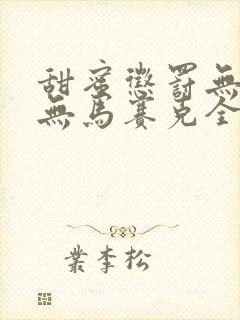 甜蜜懲罰無
無馬賽克全
業李松